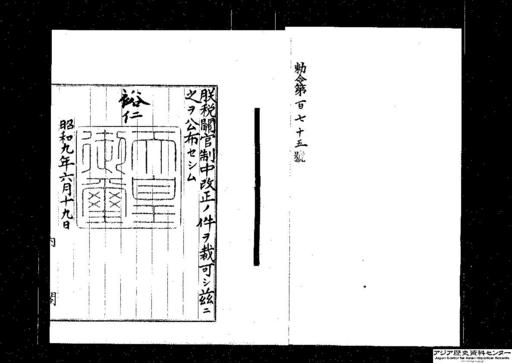 勅令第百七十五號
朕税關官制中改正ノ件ヲ裁可シ茲ニ
之ヲ公布セシム
裕仁
天皇御璽
昭和九年六月十九日
内閣
アジア歴史資料センター
Japan Center for Asian Historical Records